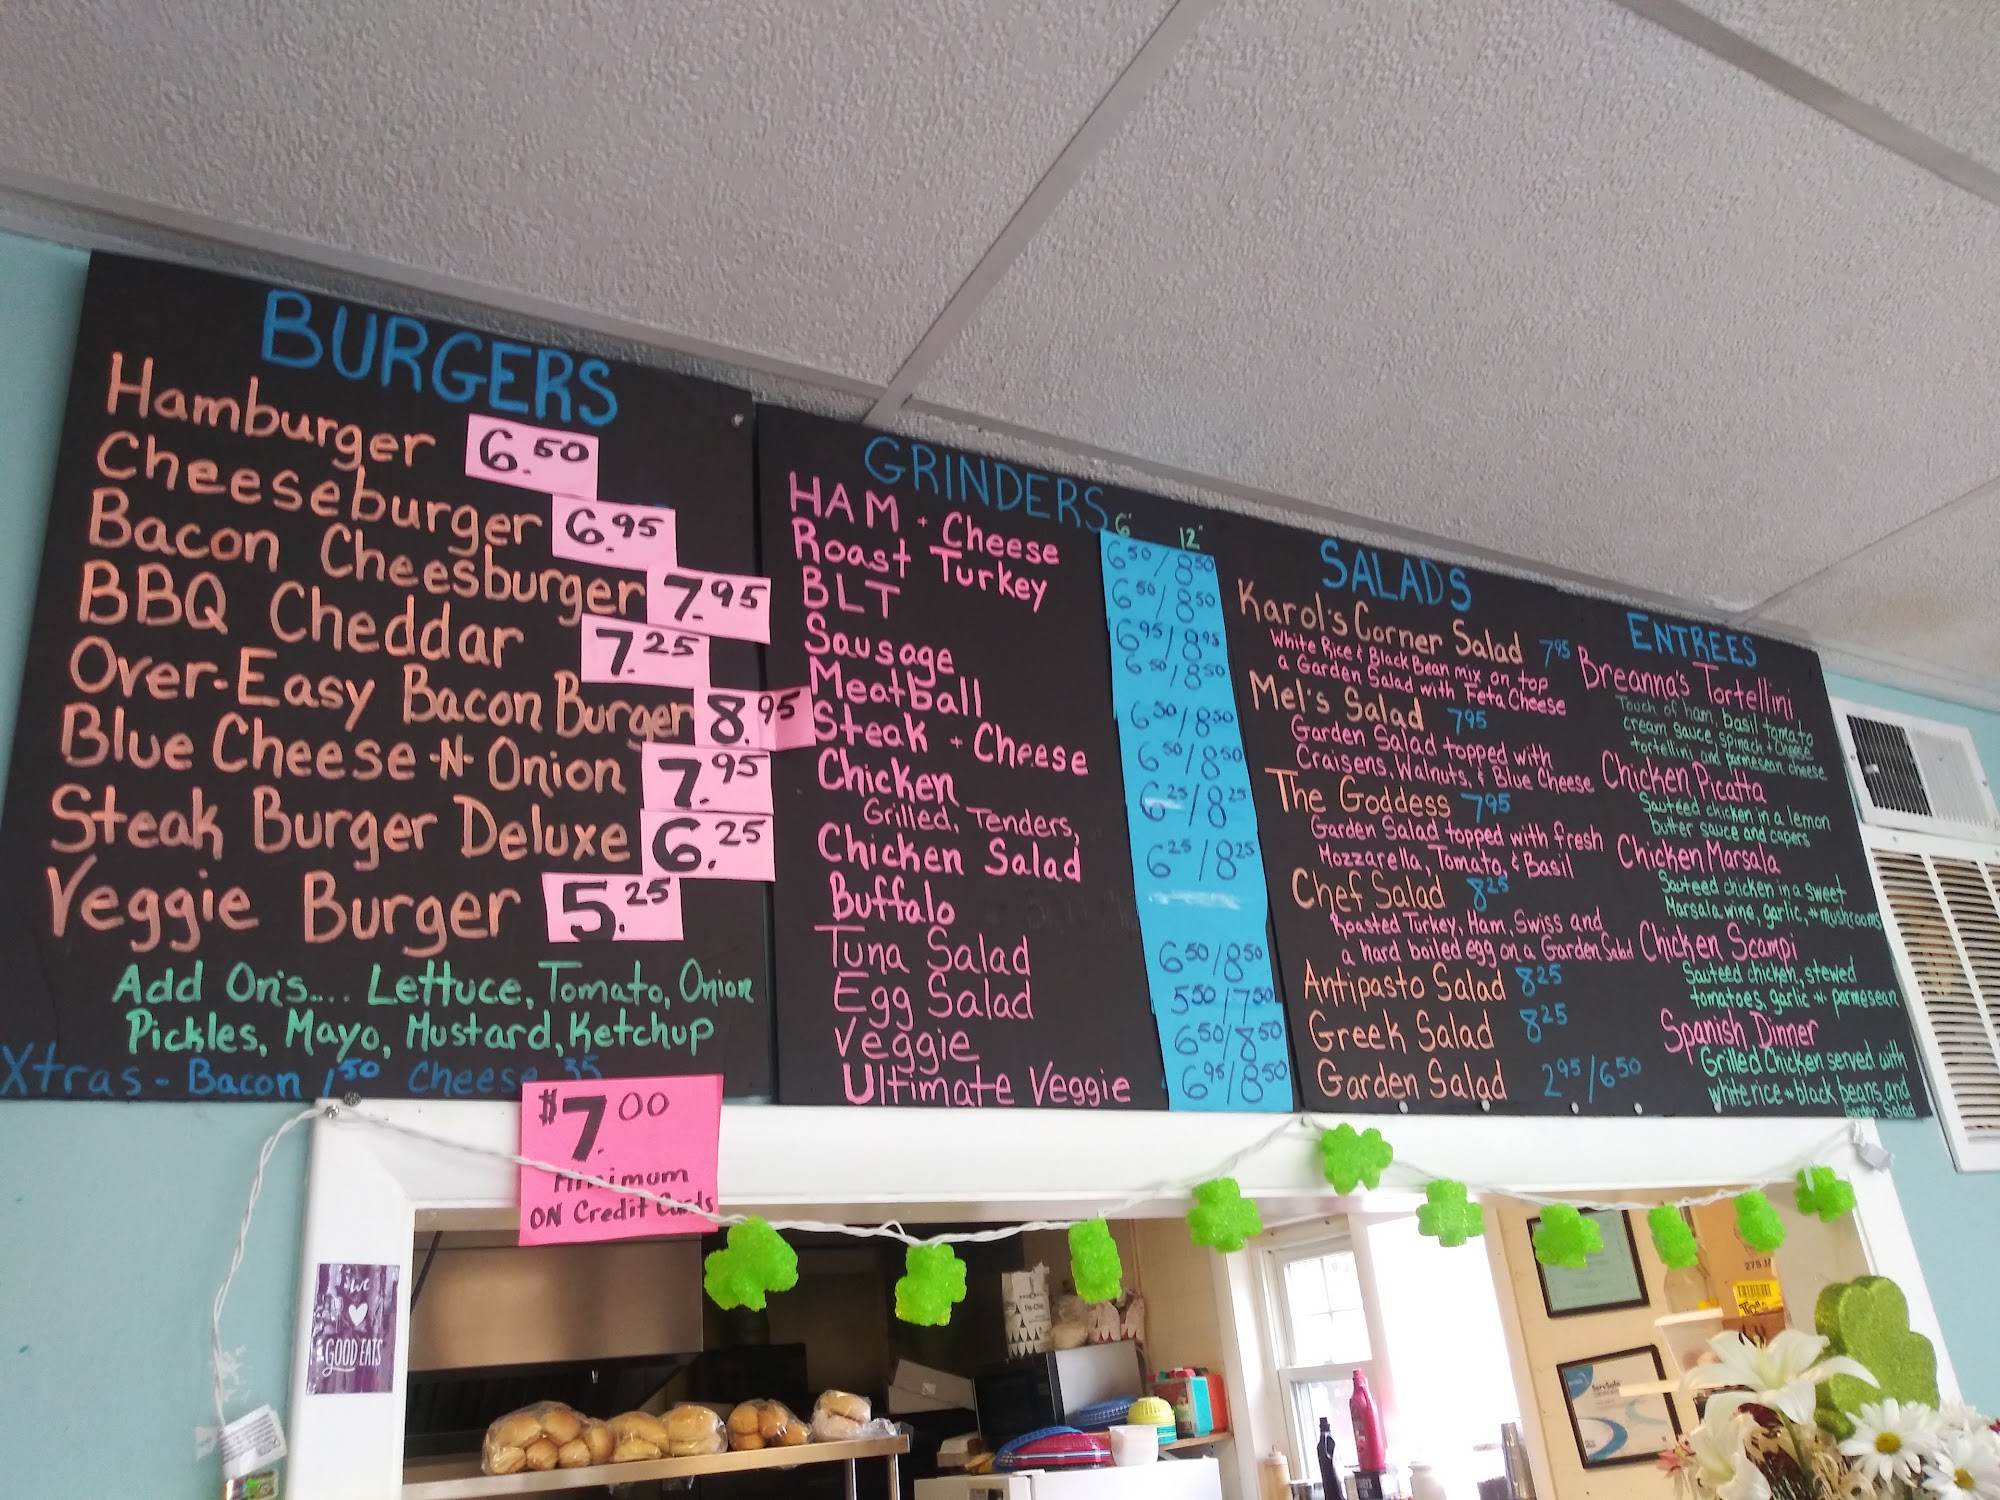 BURGERS
Hamburger 6.50
Cheeseburger 6.95
Bacon Cheesburger 7.95
BBQ Cheddar 7.25
Over-Easy Bacon Burger 8.95
Blue Cheese -N- Onion 7.95
Steak Burger Deluxe 6.25
Veggie Burger 5.25
Add On's.... Lettuce, Tomato, Onion
Pickles, Mayo, Mustard, Ketchup
Xtras - Bacon 1.50 Cheese .35
$7.00
Minimum
ON Credit Cards
GRINDERS
6" 12"
HAM + Cheese 6.50/8.50
Roast Turkey 6.50/8.50
BLT 6.95/8.95
Sausage 6.50/8.50
Meatball 6.50/8.50
Steak + Cheese 6.50/8.50
Chicken 6.25/8.25
Grilled, Tenders,
Chicken Salad 6.25/8.25
Buffalo
Tuna Salad 6.50/8.50
Egg Salad 5.50/7.50
Veggie 6.50/8.50
Ultimate Veggie 6.95/8.50
SALADS
Karol's Corner Salad 7.95
White Rice & Black Bean mix on top
a Garden Salad with Feta Cheese
Mel's Salad 7.95
Garden Salad topped with
Craisens, Walnuts, & Blue Cheese
The Goddess 7.95
Garden Salad topped with fresh
Mozzarella, Tomato, & Basil
Chef Salad 8.25
Roasted Turkey, Ham, Swiss and
a hard boiled egg on a Garden Salad
Antipasto Salad 8.25
Greek Salad 8.25
Garden Salad 2.95/6.50
ENTREES
Breanna's Tortellini
Touch of ham, basil tomato
cream sauce, spinach + cheese
tortellini and parmesean cheese
Chicken Picatta
Sautéed chicken in a lemon
butter sauce and capers
Chicken Marsala
Sautéed chicken in a sweet
Marsala wine, garlic, -n- mushrooms
Chicken Scampi
Sautéed chicken, stewed
tomatoes, garlic -n- parmesean
Spanish Dinner
Grilled Chicken served with
white rice + black beans and
Garden Salad
we
GOOD EATS
ServSafe